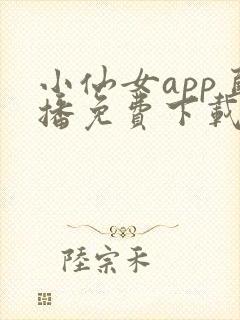 小仙女app
播免費下載
陸宗禾